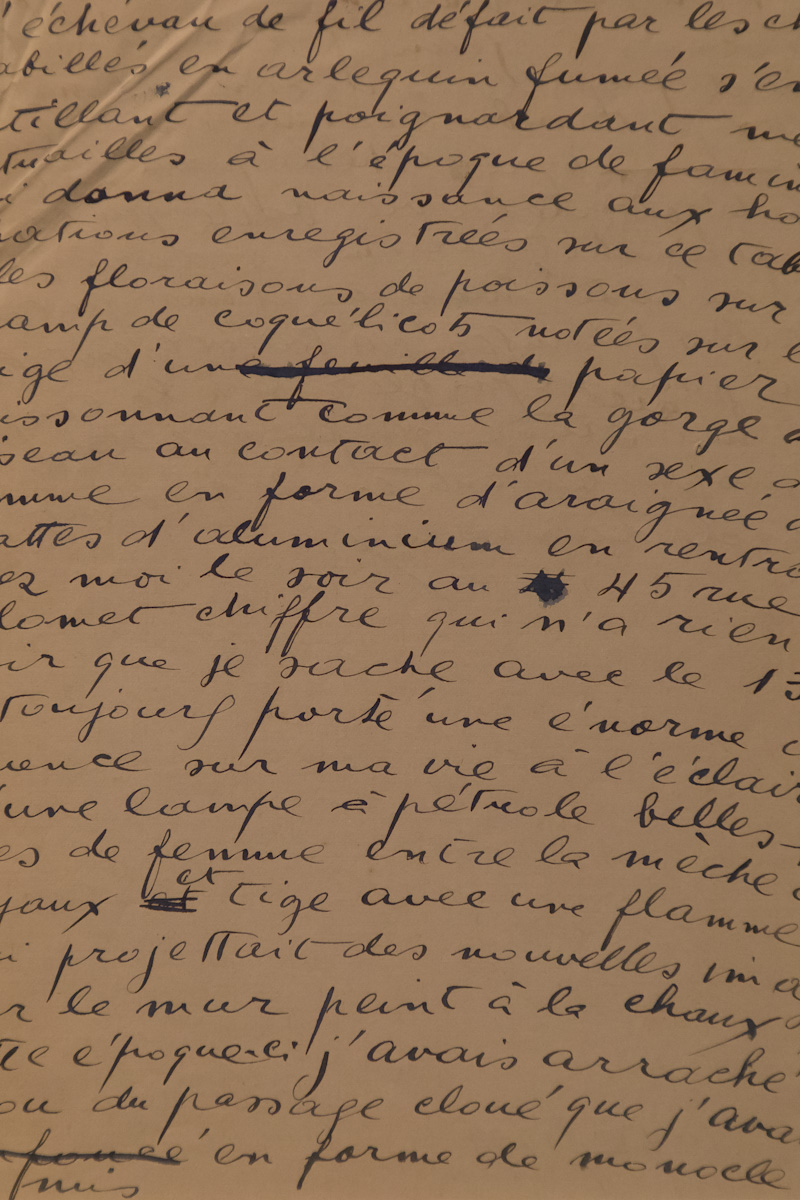 l'échevau de fil défait par les ch
abillés en arlequin fumée s'en
tillant et poignardant me
trailles à l'époque de famin
i donna naissance aux ho
nations enregistrées sur ce tab
les floraisons de poissons sur
amp de coquélicots notées sur l
ige d'une feuille de papier
issonnant comme la gorge d
seau au contact d'un sexe d
mme en forme d'araignée d
attes d'aluminium en rentra
ez moi le soir au 45 rue
lomet chiffre qui n'a rien
ir que je sache avec le 13
toujours porté une énorme i
uence sur ma vie à l'éclair
'une lampe à pétrole belles
es de femme entre la mèche
yaux et tige avec une flamme
i projettait des nouvelles ima
r le mur peint à la chaux
tte époque-ci j'avais arraché
ou du passage cloué que j'ava
foncé en forme de monocle
mis